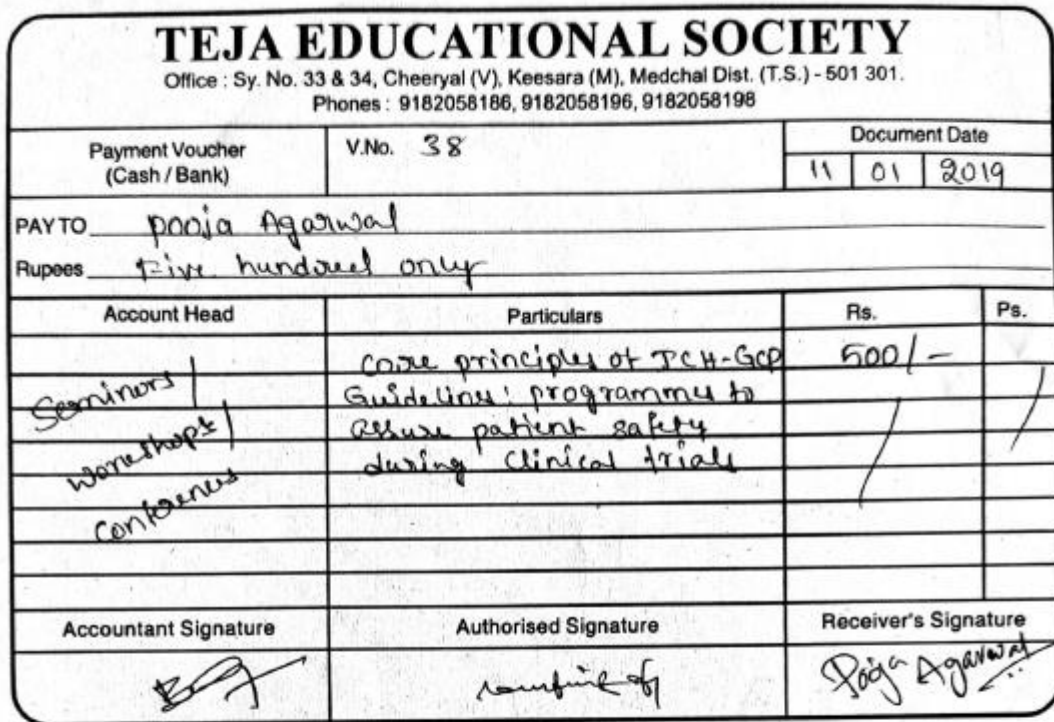 TEJA EDUCATIONAL SOCIETY
Office : Sy. No. 33 & 34, Cheeryal (V), Keesara (M), Medchal Dist. (T.S.) - 501 301.
Phones : 9182058186, 9182058196, 9182058198
Payment Voucher
(Cash / Bank)
V.No. 38
Document Date
11 01 2019
PAY TO Pooja Agarwal
Rupees Five hundred only
Account Head Particulars Rs. Ps.
Seminors /
workshops /
Conferences
Core principles of ICH-GCP 500/-
Guidelines: programmes to
assure patient safety
during clinical trials
Accountant Signature Authorised Signature Receiver's Signature
Pooja Agarwal